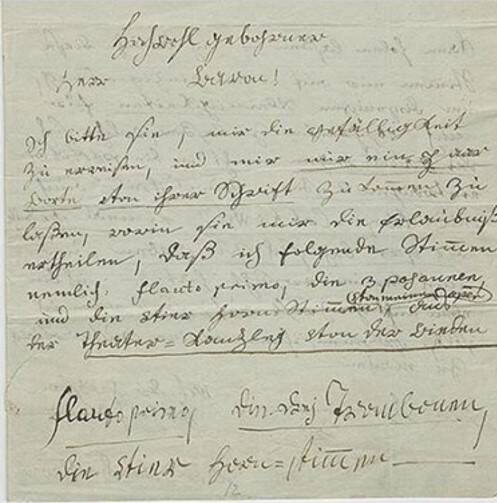 Hochwohl gebohrner
Herr Baron!
Ich bitte sie, mir die gefälligkeit
zu erweisen, und mir nur ein Paar
Worte von ihrer Schrift zu komen zu
laßen, worin sie mir die Erlaubniß
ertheilen, daß ich folgende Stim̅en
nemlich. flauto primo, die 3 posaunen,
und die vier Horn Stim̅en, aus
der Theater=Kanzley von der wieden
flauto primo, die drey
die vier Horn=stim̅en